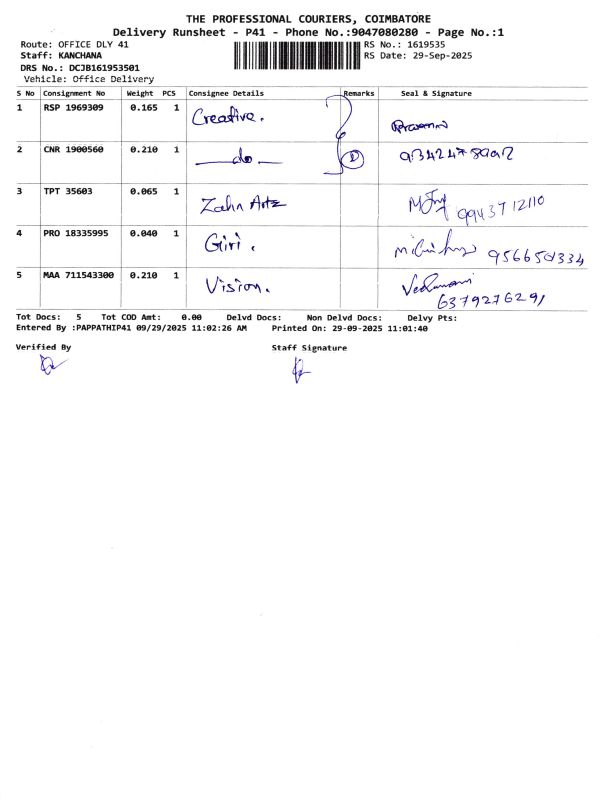 THE PROFESSIONAL COURIERS, COIMBATORE
Delivery Runsheet - P41 - Phone No.:9047080280 - Page No.:1
Route: OFFICE DLY 41 RS No.: 1619535
Staff: KANCHANA RS Date: 29-Sep-2025
DRS No.: DCJB161953501
Vehicle: Office Delivery
S No Consignment No Weight PCS Consignee Details Remarks Seal & Signature
1 RSP 1969309 0.165 1 Creative.
2 CNR 1900560 0.210 1 do
3 TPT 35603 0.065 1 Zahn Artz 9943712110
4 PRO 18335995 0.040 1 Giri.
5 MAA 711543300 0.210 1 Vision.
6379276291
Tot Docs: 5 Tot COD Amt: 0.00 Delvd Docs: Non Delvd Docs: Delvy Pts:
Entered By :PAPPATHIP41 09/29/2025 11:02:26 AM Printed On: 29-09-2025 11:01:40
Verified By Staff Signature